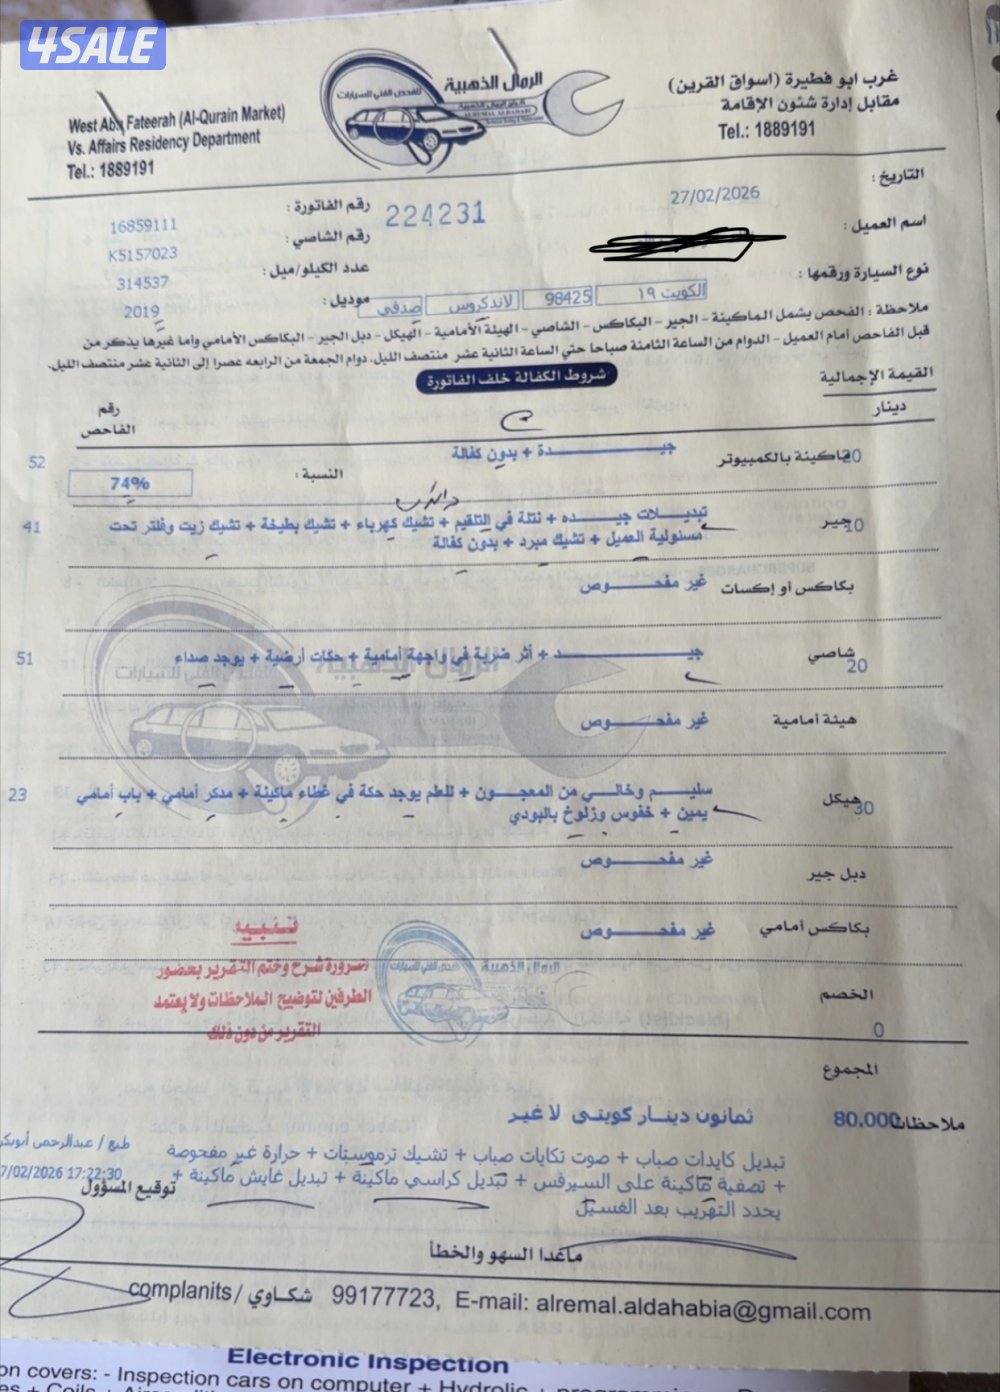 4SALE
غرب ابو فطيرة (اسواق القرين)
مقابل إدارة شئون الإقامة
Tel.: 1889191
الرمال الذهبية
للفحص الفني للسيارات
West Abu Fateerah (Al-Qurain Market)
Vs. Affairs Residency Department
Tel.: 1889191
التاريخ : 27/02/2026
رقم الفاتورة : 16859111
224231
اسم العميل :
رقم الشاصي : K5157023
نوع السيارة ورقمها : الكويت ١٩ 98425 لاندكروس صدفي
عدد الكيلو/ميل : 314537
موديل : 2019
ملاحظة : الفحص يشمل الماكينة - الجير - البكاكس - الشاصي - الهيئة الأمامية - الهيكل - دبل الجير - البكاكس الأمامي وإما غيرها يذكر من
قبل الفاحص أمام العميل - الدوام من الساعة الثامنة صباحا حتي الساعة الثانية عشر منتصف الليل. دوام الجمعة من الرابعه عصرا إلى الثانية عشر منتصف الليل.
شروط الكفالة خلف الفاتورة
القيمة الإجمالية
دينار
رقم
الفاحص
ماكينة بالكمبيوتر 20 جيــــدة + بدون كفالة 52
النسبة : 74%
جير 10 تبديـــلات جيـــده + نتلة في التلقيم + تشيك كهرباء + تشيك بطيخة + تشيك زيت وفلتر تحت 41
مسئولية العميل + تشيك مبرد + بدون كفالة
بكاكس أو إكسات غير مفحـــوص
شاصي 20 جيـــــــد + أثر ضربة في واجهة أمامية + حكات أرضية + يوجد صداء 51
هيئة أمامية غير مفحـــوص
هيكل 30 سليـــم وخالـــي من المعجـــون + للعلم يوجد حكة في غطاء ماكينة + مدكر أمامي + باب أمامي 23
يمين + خفوس وزلوخ بالبودي
دبل جير غير مفحـــوص
بكاكس أمامي غير مفحـــوص
تنبيه
ضرورة شرح وختم التقرير بحضور
الطرفين لتوضيح الملاحظات ولا يعتمد
التقرير من دون ذلك
الرمال الذهبية
الخصم
0
المجموع
80.000 ثمانون دينار كويتي لا غير
ملاحظات
تبديل كايدات صباب + صوت تكايات صباب + تشيك ترموستات + حرارة غير مفحوصة
+ تصفية ماكينة على السيرفس + تبديل كراسي ماكينة + تبديل غايش ماكينة +
يحدد التهريب بعد الغسيل
طبع / عبدالرحمن أبوبكر
7/02/2026 17:22:30
توقيع المسؤول
ماعدا السهو والخطأ
complanits/ شكاوي 99177723, E-mail: alremal.aldahabia@gmail.com
Electronic Inspection
on covers: - Inspection cars on computer + Hydrolic +